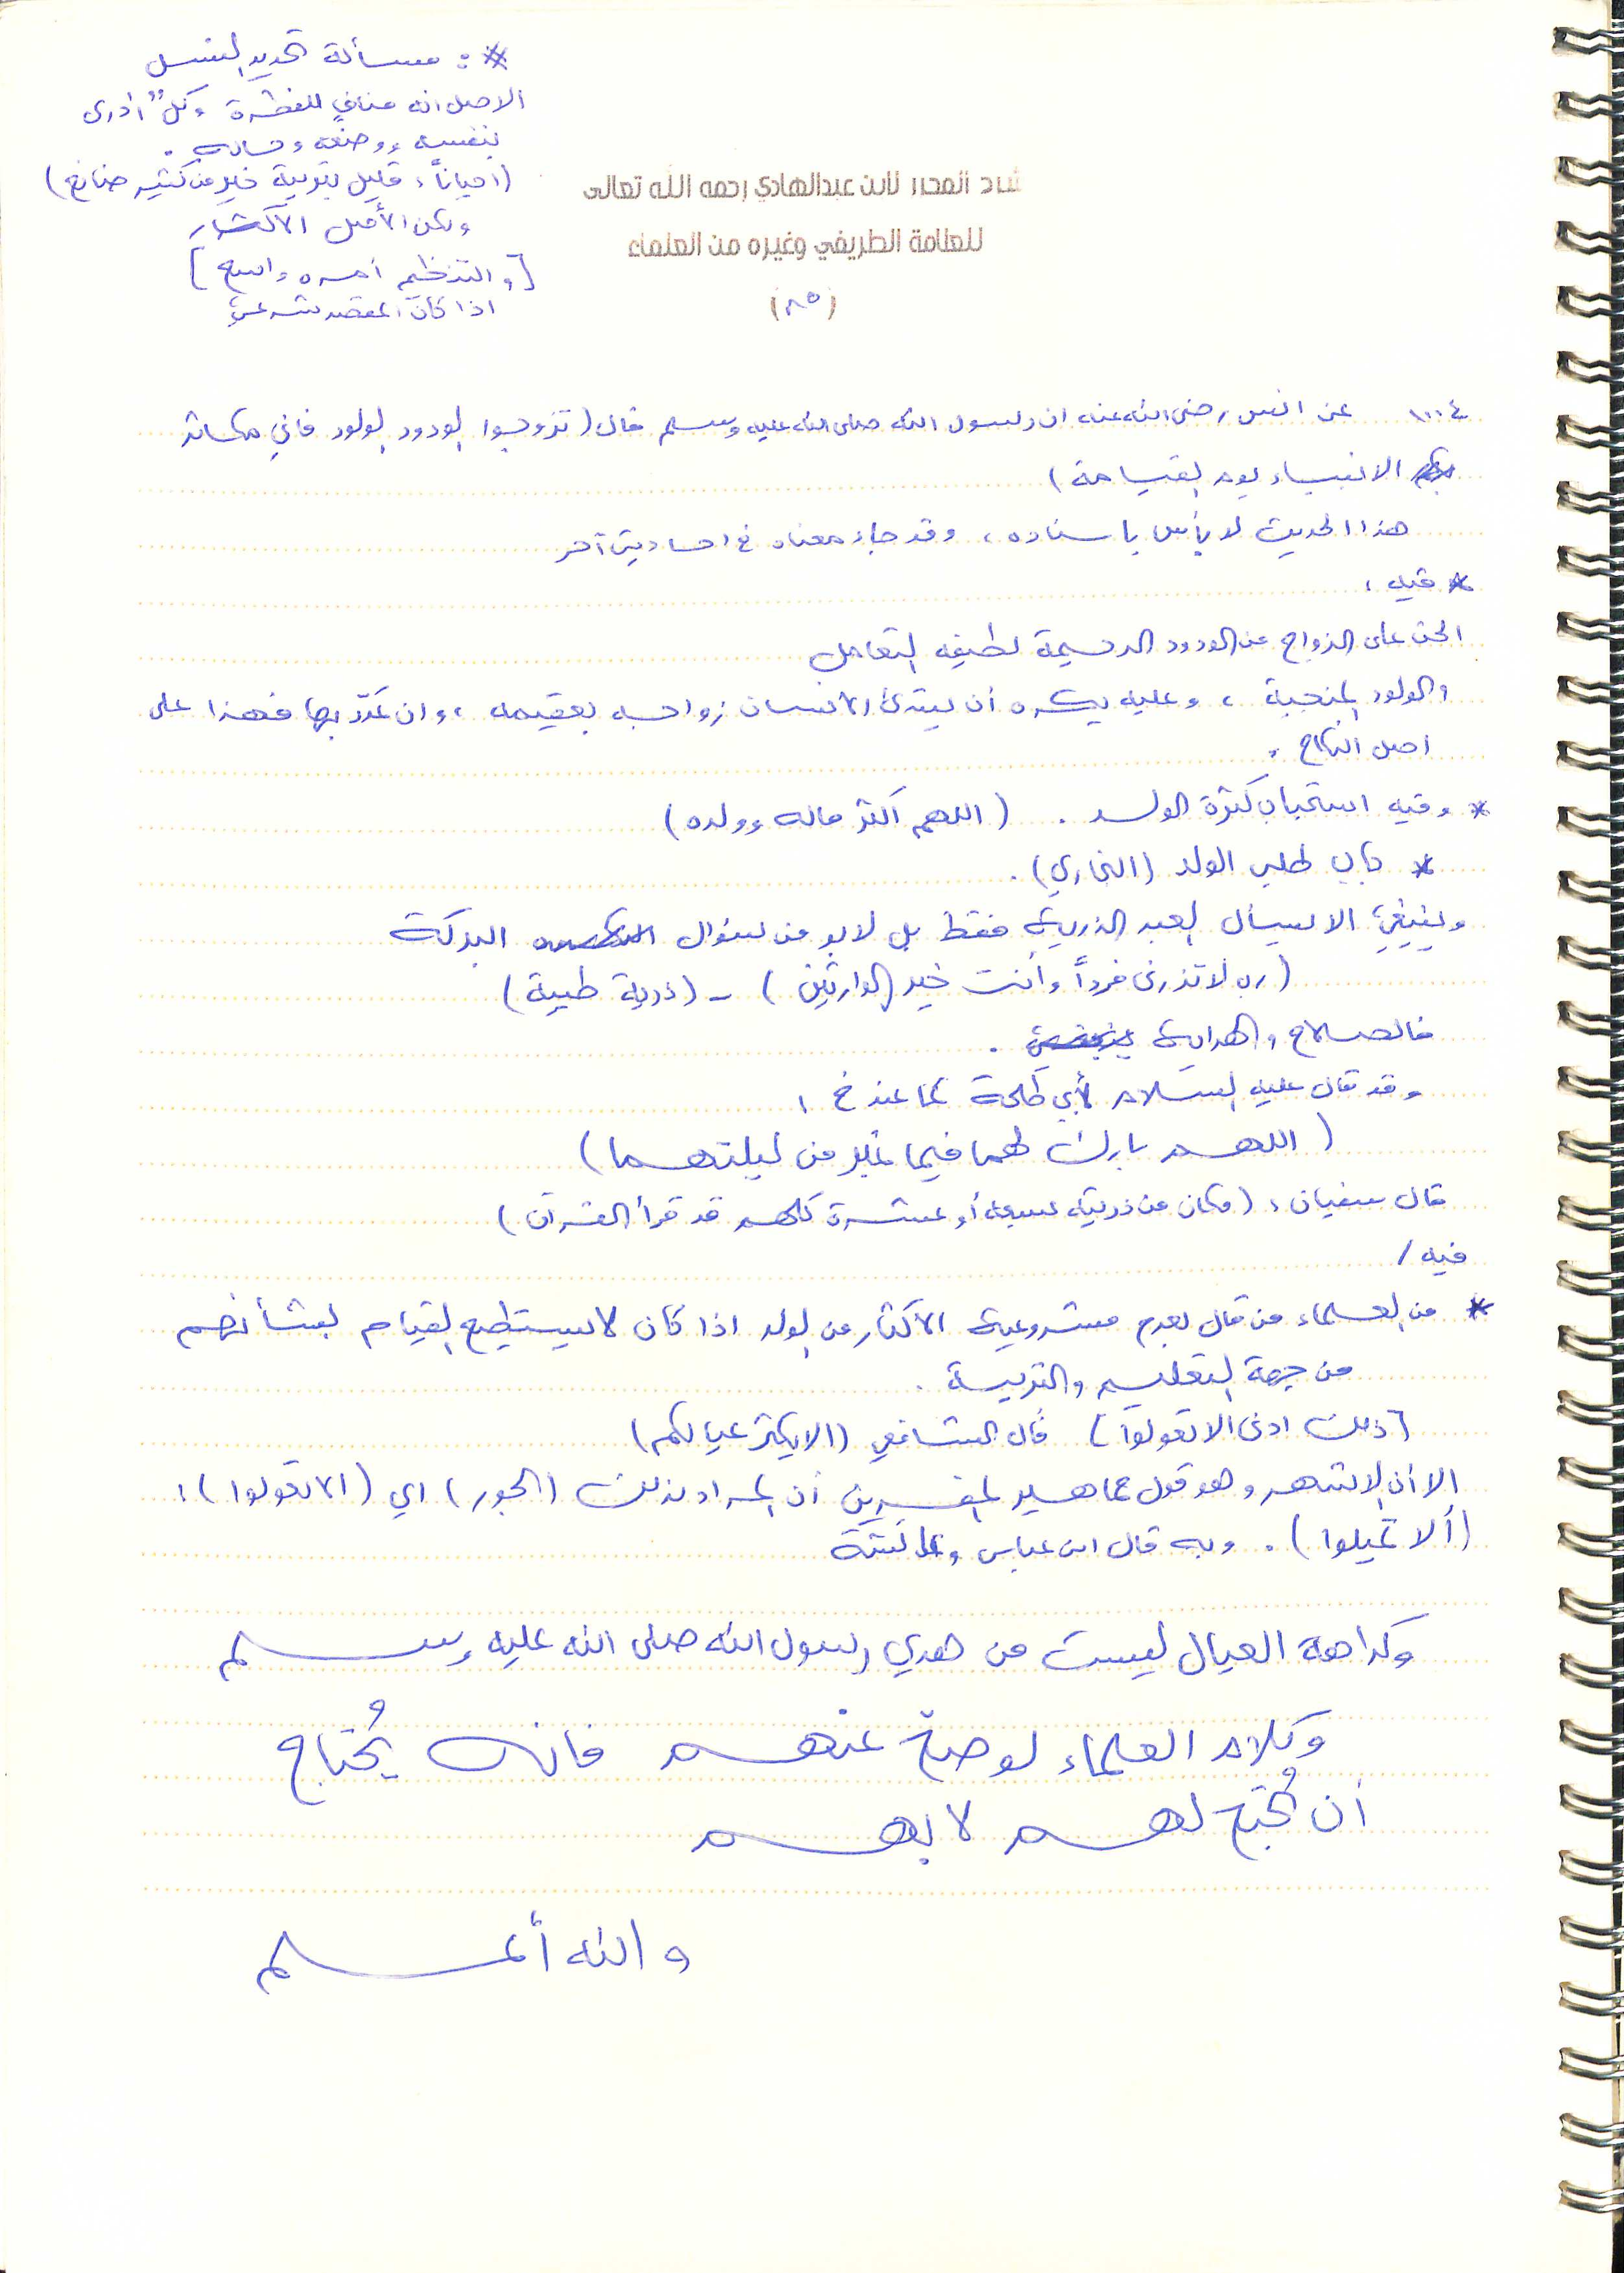 * : مسألة تحديد النسل
الاصل انه منافي للفطرة وكل أدرى
بنفسه ووضعه وماله .
(احياناً، قليل بتربية خير من كثير ضائع)
ولكن الأصل الاكثار
[والتنظيم أمره واسع]
اذا كان المقصد شرعي
شرح المحرر لابن عبدالهادي رحمه الله تعالى
للعلامة الطريفي وغيره من العلماء
(٨٥)
١٠٠٤ عن انس رضي الله عنه ان رسول الله صلى الله عليه وسلم قال (تزوجوا الودود الولود فاني مكاثر
الانبياء يوم القيامة)
هذا الحديث لا بأس باسناده ، وقد جاء معناه في احاديث آخر
* فيه :
الحث على الزواج من الودود الرحيمة لطيفه التعامل
والولود المنجبة ، وعليه يكره أن يبتدئ الانسان زواجه بعقيمه ، وان عدّد بها فهذا على
اصل النكاح .
* وفيه استحباب كثرة الولد . (اللهم أكثر ماله وولده)
* باب طلب الولد (البخاري) .
وينبغي الا يسأل العبد الذرية فقط بل لابد من سؤال البركة
(رب لا تذرني فرداً وأنت خير الوارثين) - (ذرية طيبة)
فالصلاح والهداية .
وقد قال عليه السلام لأبي طلحة كما عند خ :
(اللهم بارك لهما فيما غبر من ليلتهما)
قال سفيان : (فكان من ذريته تسعة أو عشرة كلهم قد قرأ القرآن)
فيه /
* من العلماء من قال بعدم مشروعية الاكثار من الولد اذا كان لا يستطيع القيام بشأنهم
من جهة التعليم والتربية .
[ذلك ادنى الا تعولوا] قال الشافعي (الا يكثر عيالكم)
الا أن الاشهر وهو قول جماهير المفسرين أن المراد بذلك (الجور) اي (الا تعولوا) :
(ألا تميلوا) . وبه قال ابن عباس وعائشة
وكراهة العيال ليست من هدي رسول الله صلى الله عليه وسلم
وكلام العلماء لو صح عنهم فانه يُحتاج
أن يُحتج لهم لا بهم
والله أعلم